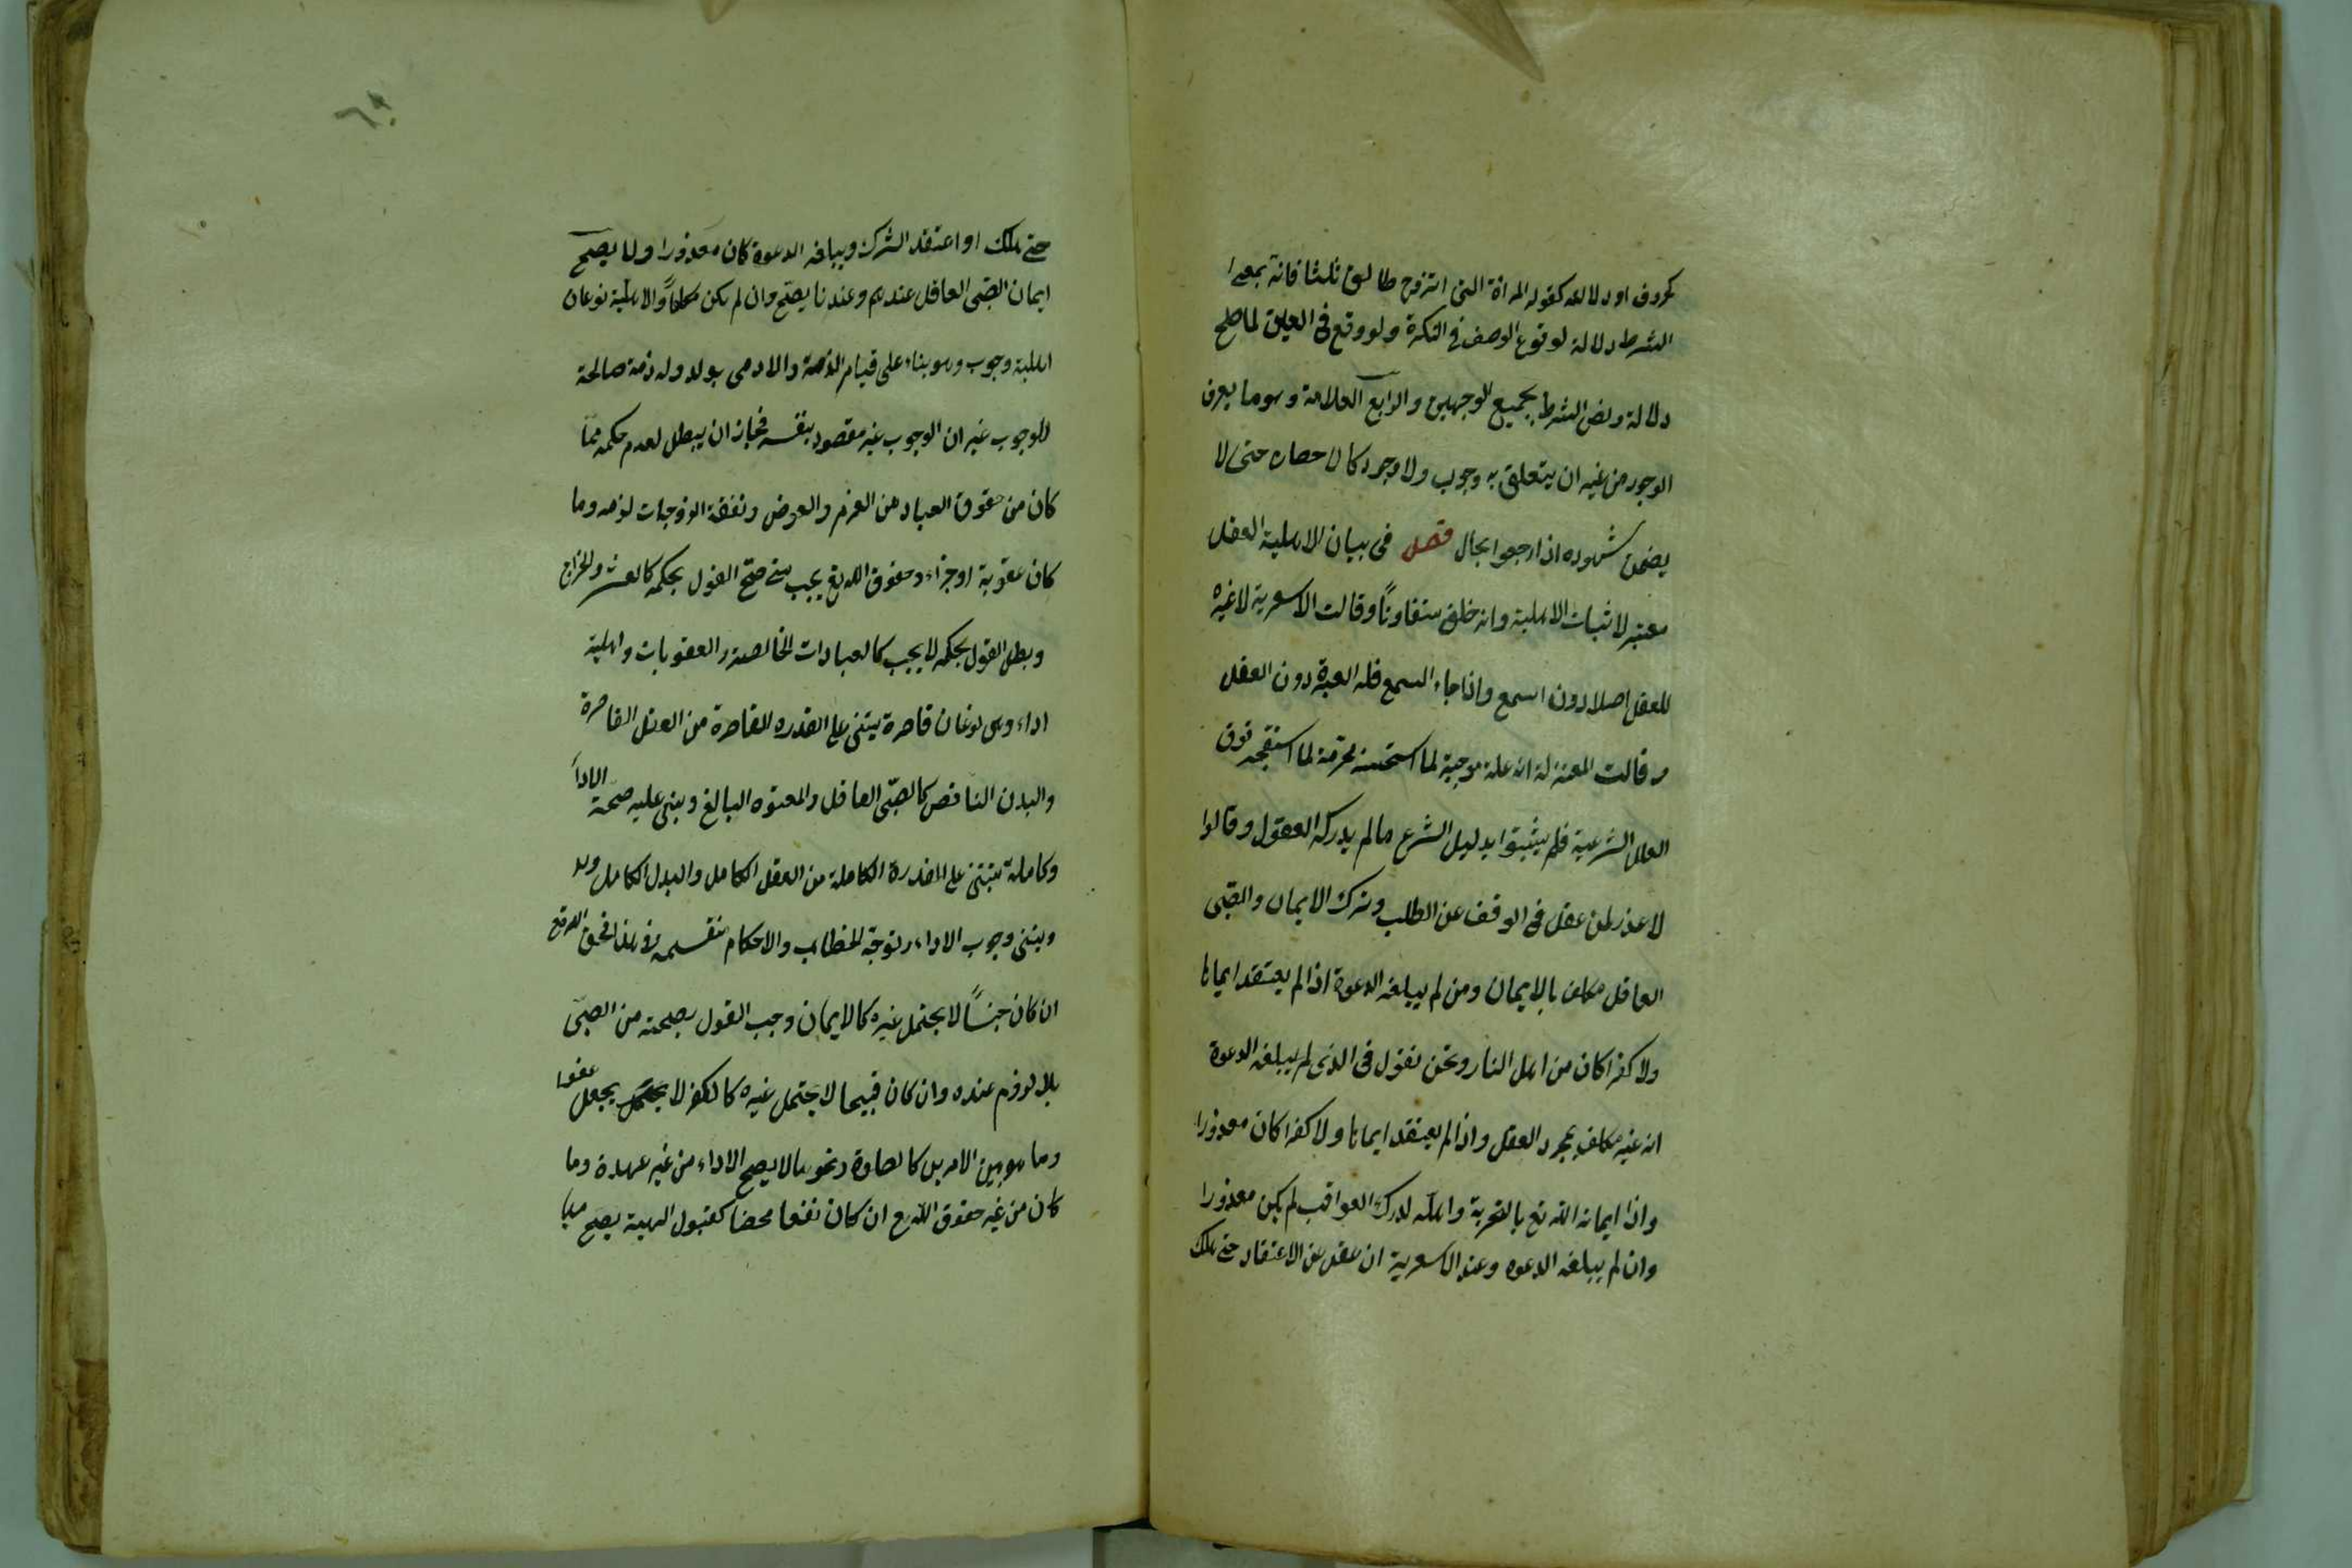 كحروف او دلالة كقوله المراة التى اتزوج طالق ثلثا فانه بمعنى
الشرط دلالة لوقوع الوصف فى النكرة ولو وقع فى العين لما صلح
دلالة ونص الشرط يجمع الوجهين والرابع العلامة وهو ما يعرف
الوجود من غير ان يتعلق به وجوب ولا وجود كالاحصان حتى لا
يضمن شهوده اذا رجعوا بحال فصل فى بيان الاهلية العقل
معتبر لاثبات الاهلية وانه خلق متفاوتًا وقالت الاسعرية لا عبرة
للعقل اصلا دون السمع واذا جاء السمع فله العبرة دون العقل
وقالت المعتزلة انه علة موجبة لما استحسنه محرمة لما استقبحه فوق
العلل الشرعية فلم يثبتوا بدليل الشرع مالم يدركه العقول وقالوا
لا عذر لمن عقل فى الوقف عن الطلب وترك الايمان والصّبى
العاقل مكلف بالايمان ومن لم يبلغه الدعوة اذا لم يعتقد ايمانا
ولا كفرا كان من اهل النار ونحن نقول فى الذى لم يبلغه الدعوة
انه غير مكلف بمجرد العقل واذا لم يعتقد ايمانا ولا كفرا كان معذورا
واذا اعانه الله تع بالتجربة وامهله لدرك العواقب لم يكن معذورا
وان لم يبلغه الدعوه وعند الاسعرية ان غفل عن الاعتقاد حتى هلك
حتى هلك او اعتقد الشرك ويبلغه الدعوة كان معذورا ولا يصح
ايمان الصّبى العاقل عندهم وعندنا يصحّ وان لم يكن مكلفًا والاهليّة نوعان
اهلية وجوب وهو بناء على قيام الذمة والادمى يولد وله ذمة صالحة
للوجوب غير ان الوجوب غير مقصود بنفسه فجاز ان يبطل لعدم حكمه فما
كان من حقوق العباد من الغرم والعوض ونفقة الزوجات لزمه وما
كان عقوبة او جزاء وحقوق الله تع يجب متى صحّ القول بحكمه كالعشر والخراج
وبطل القول بحكمه لا يجب كالعبادات الخالصة والعقوبات واهلية
اداء وهى نوعان قاصرة يبتنى على القدره القاصرة من العقل القاصرة
والبدن الناقص كالصّبى العاقل والمعتوه البالغ ويبنى عليه صحّة الاداء
وكاملة تبتنى على القدرة الكاملة من العقل الكامل والبدن الكامل
ويبتنى وجوب الاداء وتوجّه الخطاب والاحكام منقسمه فى هذا فحق الله تع
ان كان حسنًا لا يحتمل غيره كالايمان وجب القول بصحته من الصبّى
بلا لزوم عنده وان كان قبيحا لا يحتمل غيره كالكفر لا يجعل عفوا
وما هو بين الامرين كالصلوة ونحوها لا يصح الاداء من غير عهدة وما
كان من غير حقوق الله تع ان كان نفعا محضا كقبول الهبة يصح